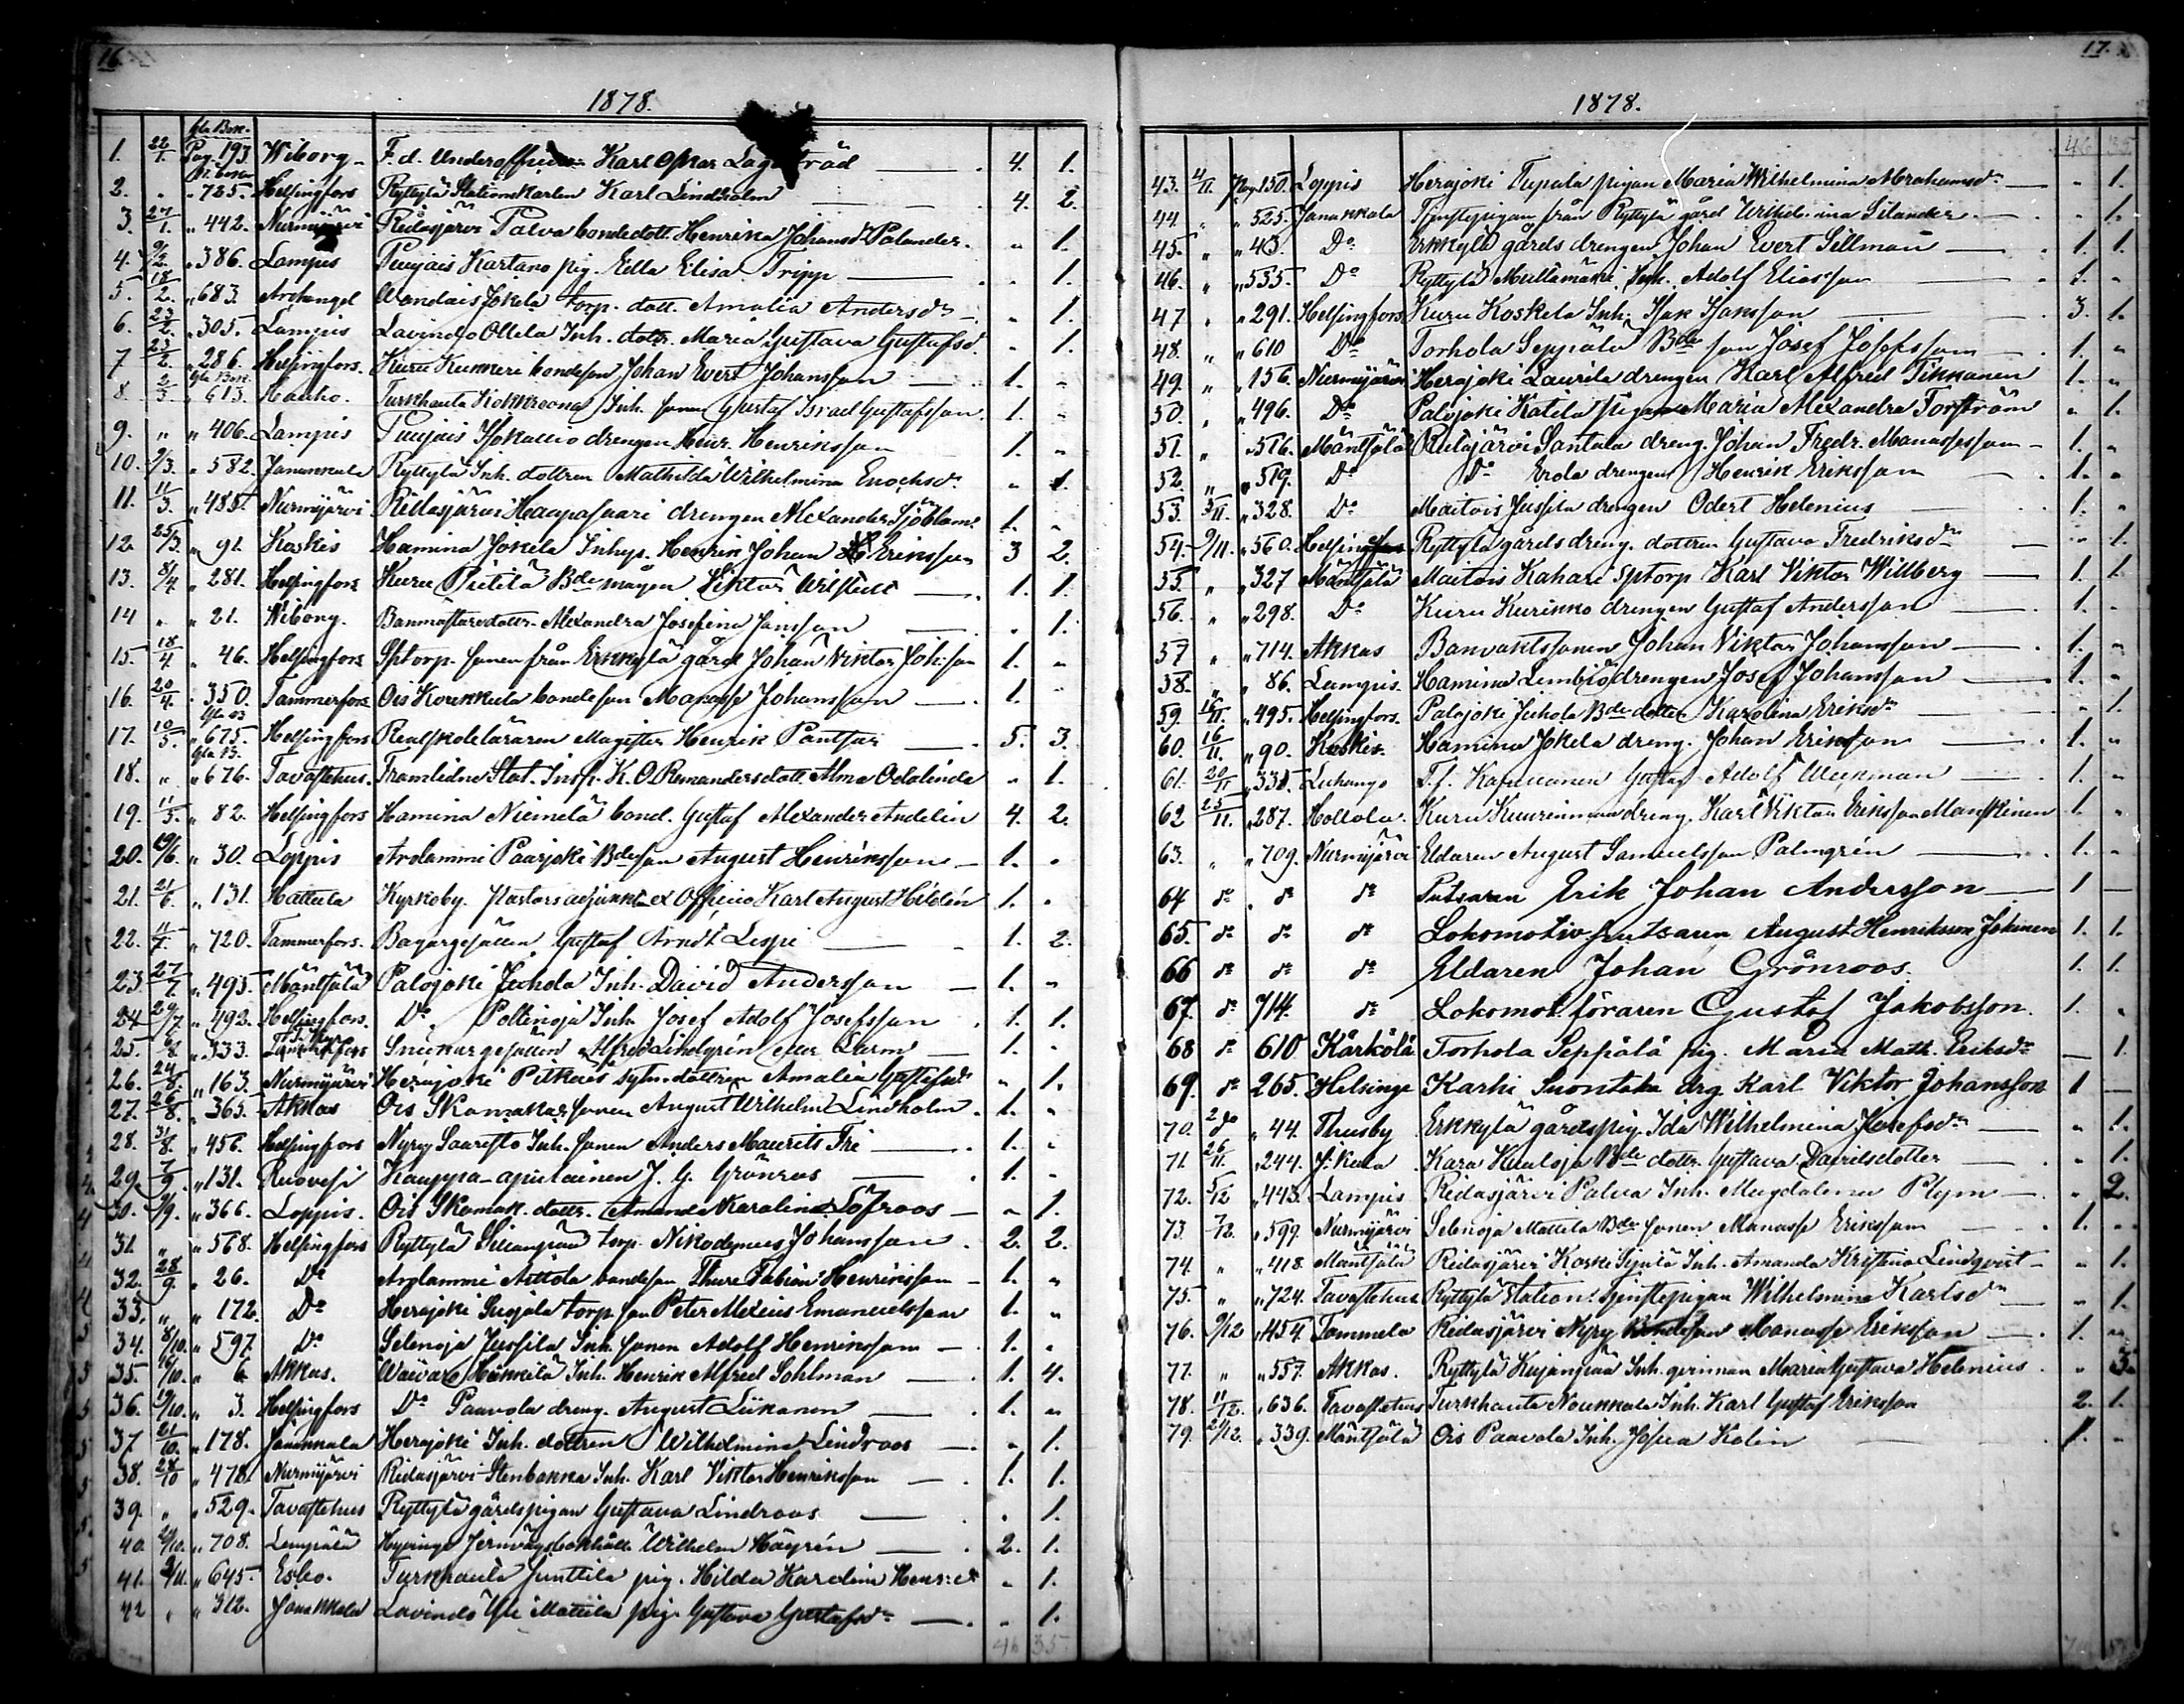 16.
1878.
Gla Bok.
1. 22/1. Pag. 193. Wiborg F. d. Underofficer Karl Oskar 4. 1.
2. " " 725. Helsingfors Ryttylä Stationskarlen Karl Lindholm 4. 2.
3. 27/1. " 442. Nurmijärvi Ridasjärvi Palva bondedott. Henrika Johansdr Palander " 1.
4. 9/2. " 386. Lampis Puujais Kartano pig. Edla Elisa Tripp " 1.
5. 18/2. " 683. Archangel Wandais Jokela torp. dott. Amalia Andersdr " 1.
6. 23/2. " 305. Lampis Lavindo Ollila Inh. dottr. Maria Gustava Gustafsd. " 1.
7 23/2. " 286. Helsingfors. Kuru bondeson Johan Evert Johansson 1. "
Gla Bok
8. 2/3. " 613. Hauho. Turkhauta Inh. sonen Gustaf Israel Gustafsson 1. "
9. " " 406. Lampis Puujais Isokallio drengen Henr. Henriksson 1. "
10. 9/3. " 582. Janakkala Ryttylä Inh. dottren Mathilda Wilhelmina Enochsdr " 1.
11. 11/3. " 485. Nurmijärvi Ridasjärvi Haapasaari drengen Alexander Sjöblom 1. "
12. 25/3. " 91. Koskis Hamina Jokela Inhys. Henrik Johan Eriksson 3 2.
13. 8/4 " 281. Helsingfors Kuru Pietilä Bde mågen Viktor 1. 1.
14 " " 21. Wiborg. Banmästaredottr. Alexandra Josefina Jansson " 1.
15. 18/4 " 46. Helsingfors Sptorp. sonen från Erkkylä gård Johan Viktor Joh:son 1. "
16. 20/4. " 350. Tammerfors Ois Koukkula bondeson Manasse Johansson 1. "
17. 10/5. " 675. Helsingfors Realskoleläraren Magister Henrik Pantsar 5. 3.
18. " " 676. Tavastehus. Framlidne Stat. Insp. K. O. Remanders dott. Alma Odalinda " 1.
19. 11/5. " 82. Helsingfors Hamina Niemelä bond. Gustaf Alexander Andelin 4. 2.
20. 19/6. " 30. Loppis Arolammi Paarjoki Bdeson August Henriksson 1. "
21. 21/6. " 131. Hattula Kyrkoby. Pastorsadjunkt ex Officio Karl August Hildén 1. "
22. 11/7. " 720. Tammerfors. Bagargesällen Gustaf Arndt Leppi 1. 2.
23 27/7. " 495. Mäntsälä Palojoki Juhola Inh. David Andersson 1. "
24 29/7. " 492. Helsingfors. Do Poltinoja Inh. Josef Adolf Josefsson 1. 1.
25. 6/8. " 333. Snickargesällen Alfred Lindgrén eller Larm 1. "
26. 24/8. " 163. Nurmijärvi Herajoki Pitkäis sytn. dottren Amalia Gustafsdr " 1.
27. 26/8. " 365. Akkas Ois Skomakarsonen August Wilhelm Lindholm 1. "
28. 31/8. " 456. Helsingfors Nyry Saaristo Inh. sonen Anders Maurits Fri 1. "
29. 7/9. " 131. Ruovesi Kauppa-apulainen J. G. Grönros 1. "
30. 9/9. " 366. Loppis. Ois Skomak. dottr. Amanda Karolina Löfroos " 1.
31. " " 568. Helsingfors Ryttylä torp. Nikodemus Johansson 2. 2.
32. 28/9. " 26. Do Arolammi Aittola bondeson Thure Fabian Henriksson 1. "
33. " " 172. Do Herajoki torp. son Peter Alexius Emanuelsson 1. "
34. 8/10. " 597. Do Selenoja Jussila Inh. sonen Adolf Henriksson 1. "
35. " 6. Akkas. Hinkkilä Inh. Henrik Alfred Sohlman 1. 4.
36. 19/10. " 3. Helsingfors Do Paavola dreng. August Liikanen 1. "
37 21/10. " 178. Janakkala Herajoki Inh. dottren Wilhelmina Lindroos " 1.
38. 28/10 " 478. Nurmijärvi Ridasjärvi Stenbakka Inh. Karl Viktor Henriksson 1. 1.
39. " " 529. Tavastehus Ryttylä gårdspigan Gustava Lindroos " 1.
40. " 708. Lempälä Hyvinge Jernvägsbokhåll. Wilhelm Häyrén 2. 1.
41. 2/11. " 645. Esbo. Turkhauta Junttila pig. Hilda Karolina " 1.
42 " " 312. Janakkala Lavindo Yli Mattila pig. Gustava Gustafsdr " 1.
46 35
17.
1878.
46 35
43. 4/11. Pag. 130. Loppis Herajoki Tupala pigan Maria Wilhelmina Abrahamsdr " 1.
44. " " 525. Janakkala Tjenstepigan från Ryttylä gård Wilhelmina Silander " 1.
45. " " 43. Do Erkkylä gårds drengen Johan Evert Sillman 1. 1.
46. " " 535. Do Ryttylä Multamäki Inh. Adolf Eliasson 1. "
47 " " 291. Helsingfors Kuru Koskela Inh. Isak Isaksson 3. 1.
48. " " 610 Do Torhola Seppälä Bde son Josef Josefsson 1. "
49. " " 156. Nurmijärvi Herajoki Laurila drengen Karl Alfred Tikkanen 1. "
50. " " 496. Do Palojoki Katela pigan Maria Alexandra Forström " 1.
51. " " 516. Mäntsälä Ridasjärvi Santala dreng. Johan Fredr. Manassesson 1. "
52. " " 519. Do Do Erola drengen Henrik Eriksson 1. "
53. 5/11. " 328. Do Maitois Jussila drengen Odert Helenius 1. "
54. 9/11. " 560. Helsingfors Ryttylä gårdsdreng. dottren Gustava Fredriksdr " 1.
55. " " 327 Mäntsälä Maitois Kahari sptorp Karl Viktor Willberg 1. 1.
56. " " 298. Do Kuru Kurikko drengen Gustaf Andersson 1. "
57 " " 714. Akkas Banvaktssonen Johan Viktor Johansson 1. "
58. " " 86. Lampis. Hamina Limbiö drengen Josef Johansson 1. "
59. 16/11. " 495. Helsingfors. Palojoki Juhola Bde dotter Karolina Eriksdr " 1.
60. 16/11. " 90. Koskis. Hamina Jokela dreng. Johan Eriksson 1. "
61. 20/11 " 331. Luhango T. f. Kapellanen Gustaf Adolf Weckman 1. "
62 25/11. " 287. Hollola. Kuru dreng. Karl Viktor Eriksson Manskinen 1. "
63. " " 709. Nurmijärvi Eldaren August Samuelsson Palmgrén 1. "
64 do do do Putsaren Erik Johan Andersson 1 —
65. do do do Lokomotivputsaren August Henriksson Jokinen 1. 1.
66 do do do Eldaren Johan Grönroos. 1. 1.
67. do 714. do Lokomot.föraren Gustaf Jakobsson. 1. "
68 do 610 Kärkölä Torhola Seppälä pig. Maria Math. Eriksdr — 1.
69. do 265. Helsinge Karhi Suontaka drg Karl Viktor Johansson 1 —
70. " 44. Thusby Erkkylä gårdspig. Ida Wilhelmina Josefsdr " 1.
71. 26/11. " 244. Kara Huuloja Bde dottr. Gustava Davidsdotter " 1.
72. 5/12 " 443. Lampis. Ridasjärvi Palva Inh. Magdalena Plym " 2.
73. 7/12. " 599. Nurmijärvi Selenoja Mattila Bde sonen Manasse Eriksson 1. "
74. " " 418. Mäntsälä Ridasjärvi Koski Inh. Amanda Kristina Lindqvist " 1.
75. " " 724. Tavastehus Ryttylä Station. Tjenstepigan Wilhelmina Karlsdr " 1.
76. 9/12 " 454. Tammela Ridasjärvi Nyry Bondeson Manasse Eriksson 1. "
77. " " 557. Akkas. Ryttylä Kujanpää Inh. qvinnan Maria Gustava Helenius " 3.
78. 11/12. " 636. Tavastehus Turkhauta Noukkala Inh. Karl Gustaf Eriksson 2. 1.
79. 21/12. " 339. Mäntsälä Ois Paavola Inh. Josua Kolin 1. "